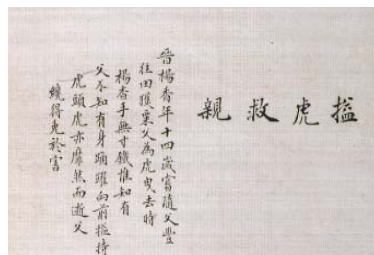 搤虎救親
晉楊香年十四歲嘗隨父豐
往田穫粟父為虎曳去時
楊香手無寸鐵惟知有
父不知有身踴躍向前搤持
虎頭虎亦靡然而逝父
纔得免於害